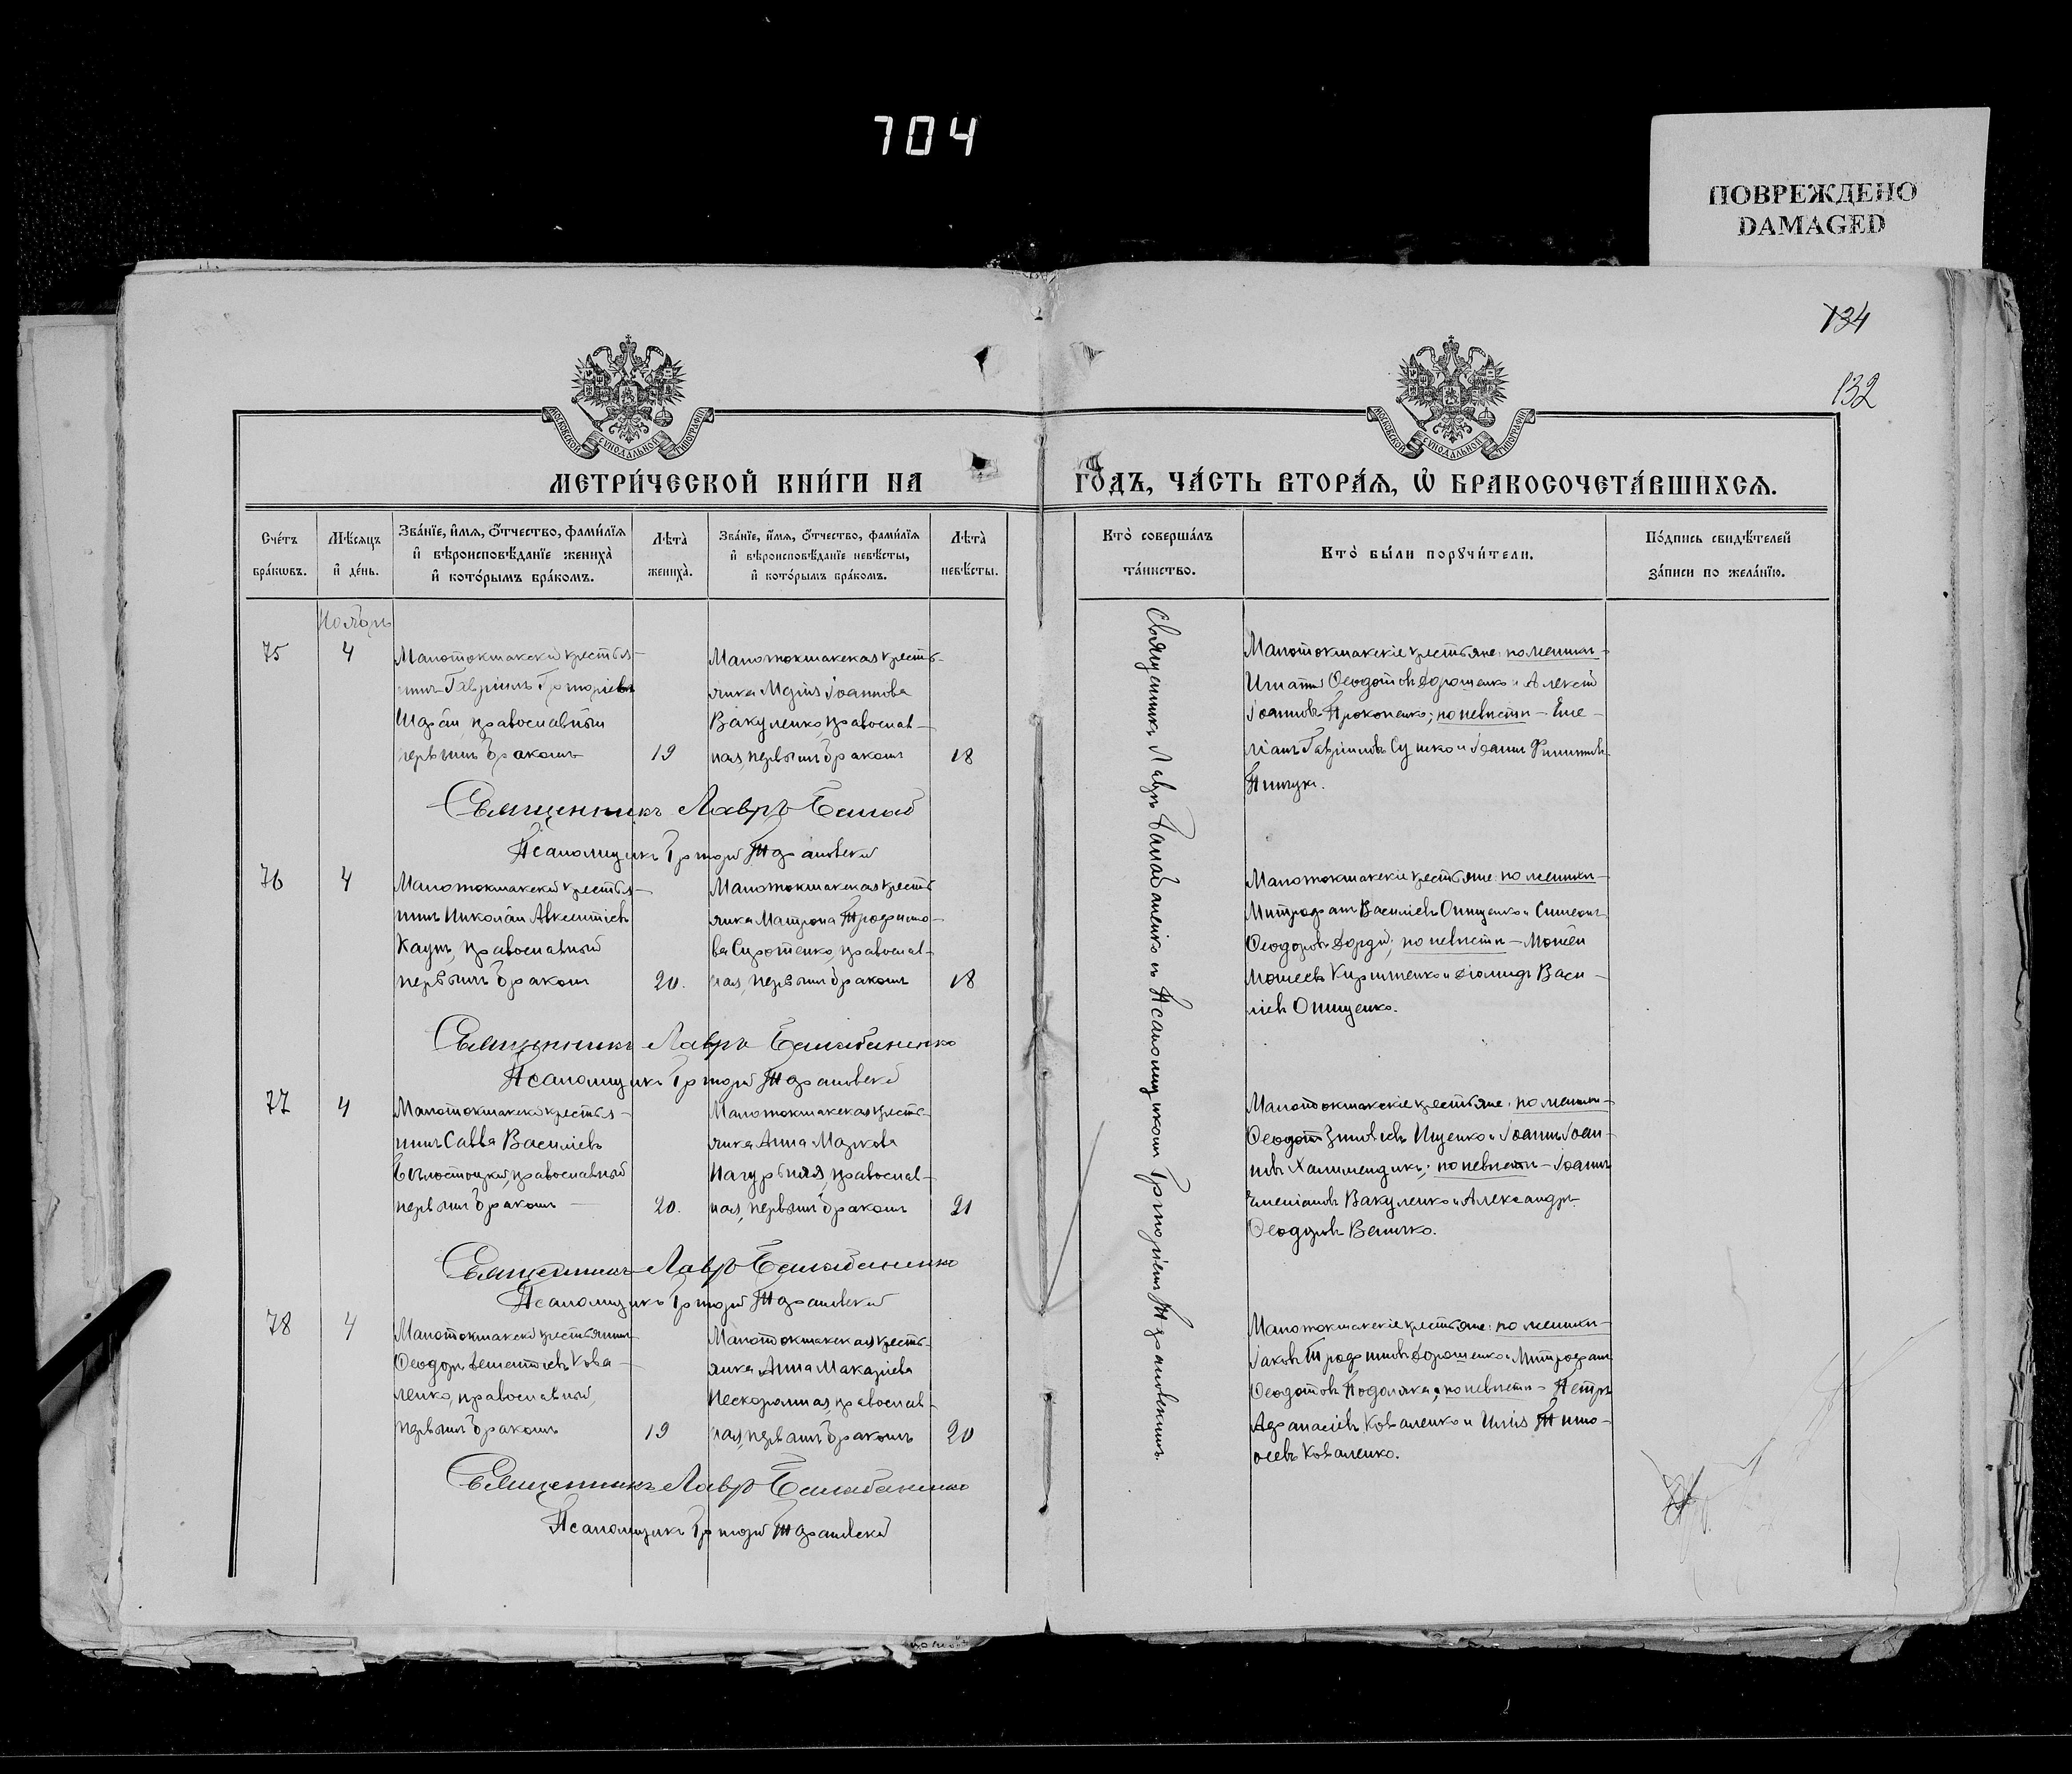 704
ПОВРЕЖДЕНО
DAMAGED
134
132
МОСКОВСКОЙ СѴНОДАЛЬНОЙ ТИПОГРАФІИ
МОСКОВСКОЙ СѴНОДАЛЬНОЙ ТИПОГРАФІИ
МЕТРИ́ЧЕСКОЙ КНИ́ГИ НА ГО́ДЪ, ЧА́СТЬ ВТОРА́Я, Ѡ БРАКОСОЧЕТА́ВШИХСЯ.
Сче́тъ бра́кωвъ.
Мѣ́сяцъ и҆ де́нь.
Зва́нїе, и҆́мя, ѻ҆́тчество, фами́лїя
и҆ вѣроисповѣ́данїе жениха̀
и҆ кото́рымъ бра́комъ.
Лѣта̀ жениха̀.
Зва́нїе, и҆́мя, ѻ҆́тчество, фами́лїя
и҆ вѣроисповѣ́данїе невѣ́сты,
и҆ кото́рымъ бра́комъ.
Лѣта̀ невѣ́сты.
Кто̀ соверша́лъ
та́инство.
Кто̀ бы́ли порꙋчи́тели.
По́дпись свидѣ́телей
за́писи по жела́нїю.
Ноябрь
75
4
Малотокмакскій крестья-
нинъ Гавріилъ Григоріевъ
Шарай, православный
первымъ бракомъ
19
Малотокмакская кресть-
янка Марія Іоаннова
Вакуленко, православ-
ная, первымъ бракомъ
18
Священникъ Лавръ Балабаненко съ Псаломщикомъ Григоріемъ
Малотокмакскіе крестьяне: по женихѣ-
Игнатій Ѳеодотовъ Дорошенко и Алексій
Іоанновъ Прокопенко; по невѣстѣ – Еме-
ліанъ Гавріиловъ Сушко и Іоаннъ Филиповъ
Священникъ Лавръ
Псаломщикъ Григорій
76
4
Малотокмакскій крестья-
нинъ Николай Авксентіевъ
православный
первымъ бракомъ
20.
Малотокмакская кресть-
янка Матрона Трофимо-
ва Сиротенко, православ-
ная, первымъ бракомъ
18
Малотокмакскіе крестьяне: по женихѣ-
Митрофанъ Василіевъ Онищенко и Симеонъ
Ѳеодоровъ; по невѣстѣ – Моисей
Моисеевъ Кириченко и Діомидъ Васи-
ліевъ Онищенко.
Священникъ Лавръ Балабаненко
Псаломщикъ Григорій
77
4
Малотокмакскій крестья-
нинъ Савва Василіевъ
Бѣлостоцкій, православный
первымъ бракомъ –
20.
Малотокмакская кресть-
янка Анна Маркова
Нагурная, православ-
ная, первымъ бракомъ
21
Малотокмакскіе крестьяне: по женихѣ-
Ѳеодотъ Зиновіевъ Ищенко и Іоаннъ Іоан-
новъ; по невѣстѣ – Іоаннъ
Емеліановъ Вакуленко и Александръ
Ѳеодоровъ Величко.
Священникъ Лавръ Балабаненко
Псаломщикъ Григорій
78
4
Малотокмакскій крестьянинъ
Ѳеодоръ Дементіевъ Кова-
ленко, православный,
первымъ бракомъ
19
Малотокмакская кресть-
янка Анна Макаріева
Нескоромная, православ-
ная, первымъ бракомъ
20
Малотокмакскіе крестьяне: по женихѣ-
Іаковъ Трофимовъ Дорошенко и Митрофанъ
Ѳеодотовъ Подоляка; по невѣстѣ – Петръ
Аѳанасіевъ Коваленко и Илія Тимо-
ѳеевъ Коваленко.
Священникъ Лавръ Балабаненко
Псаломщикъ Григорій